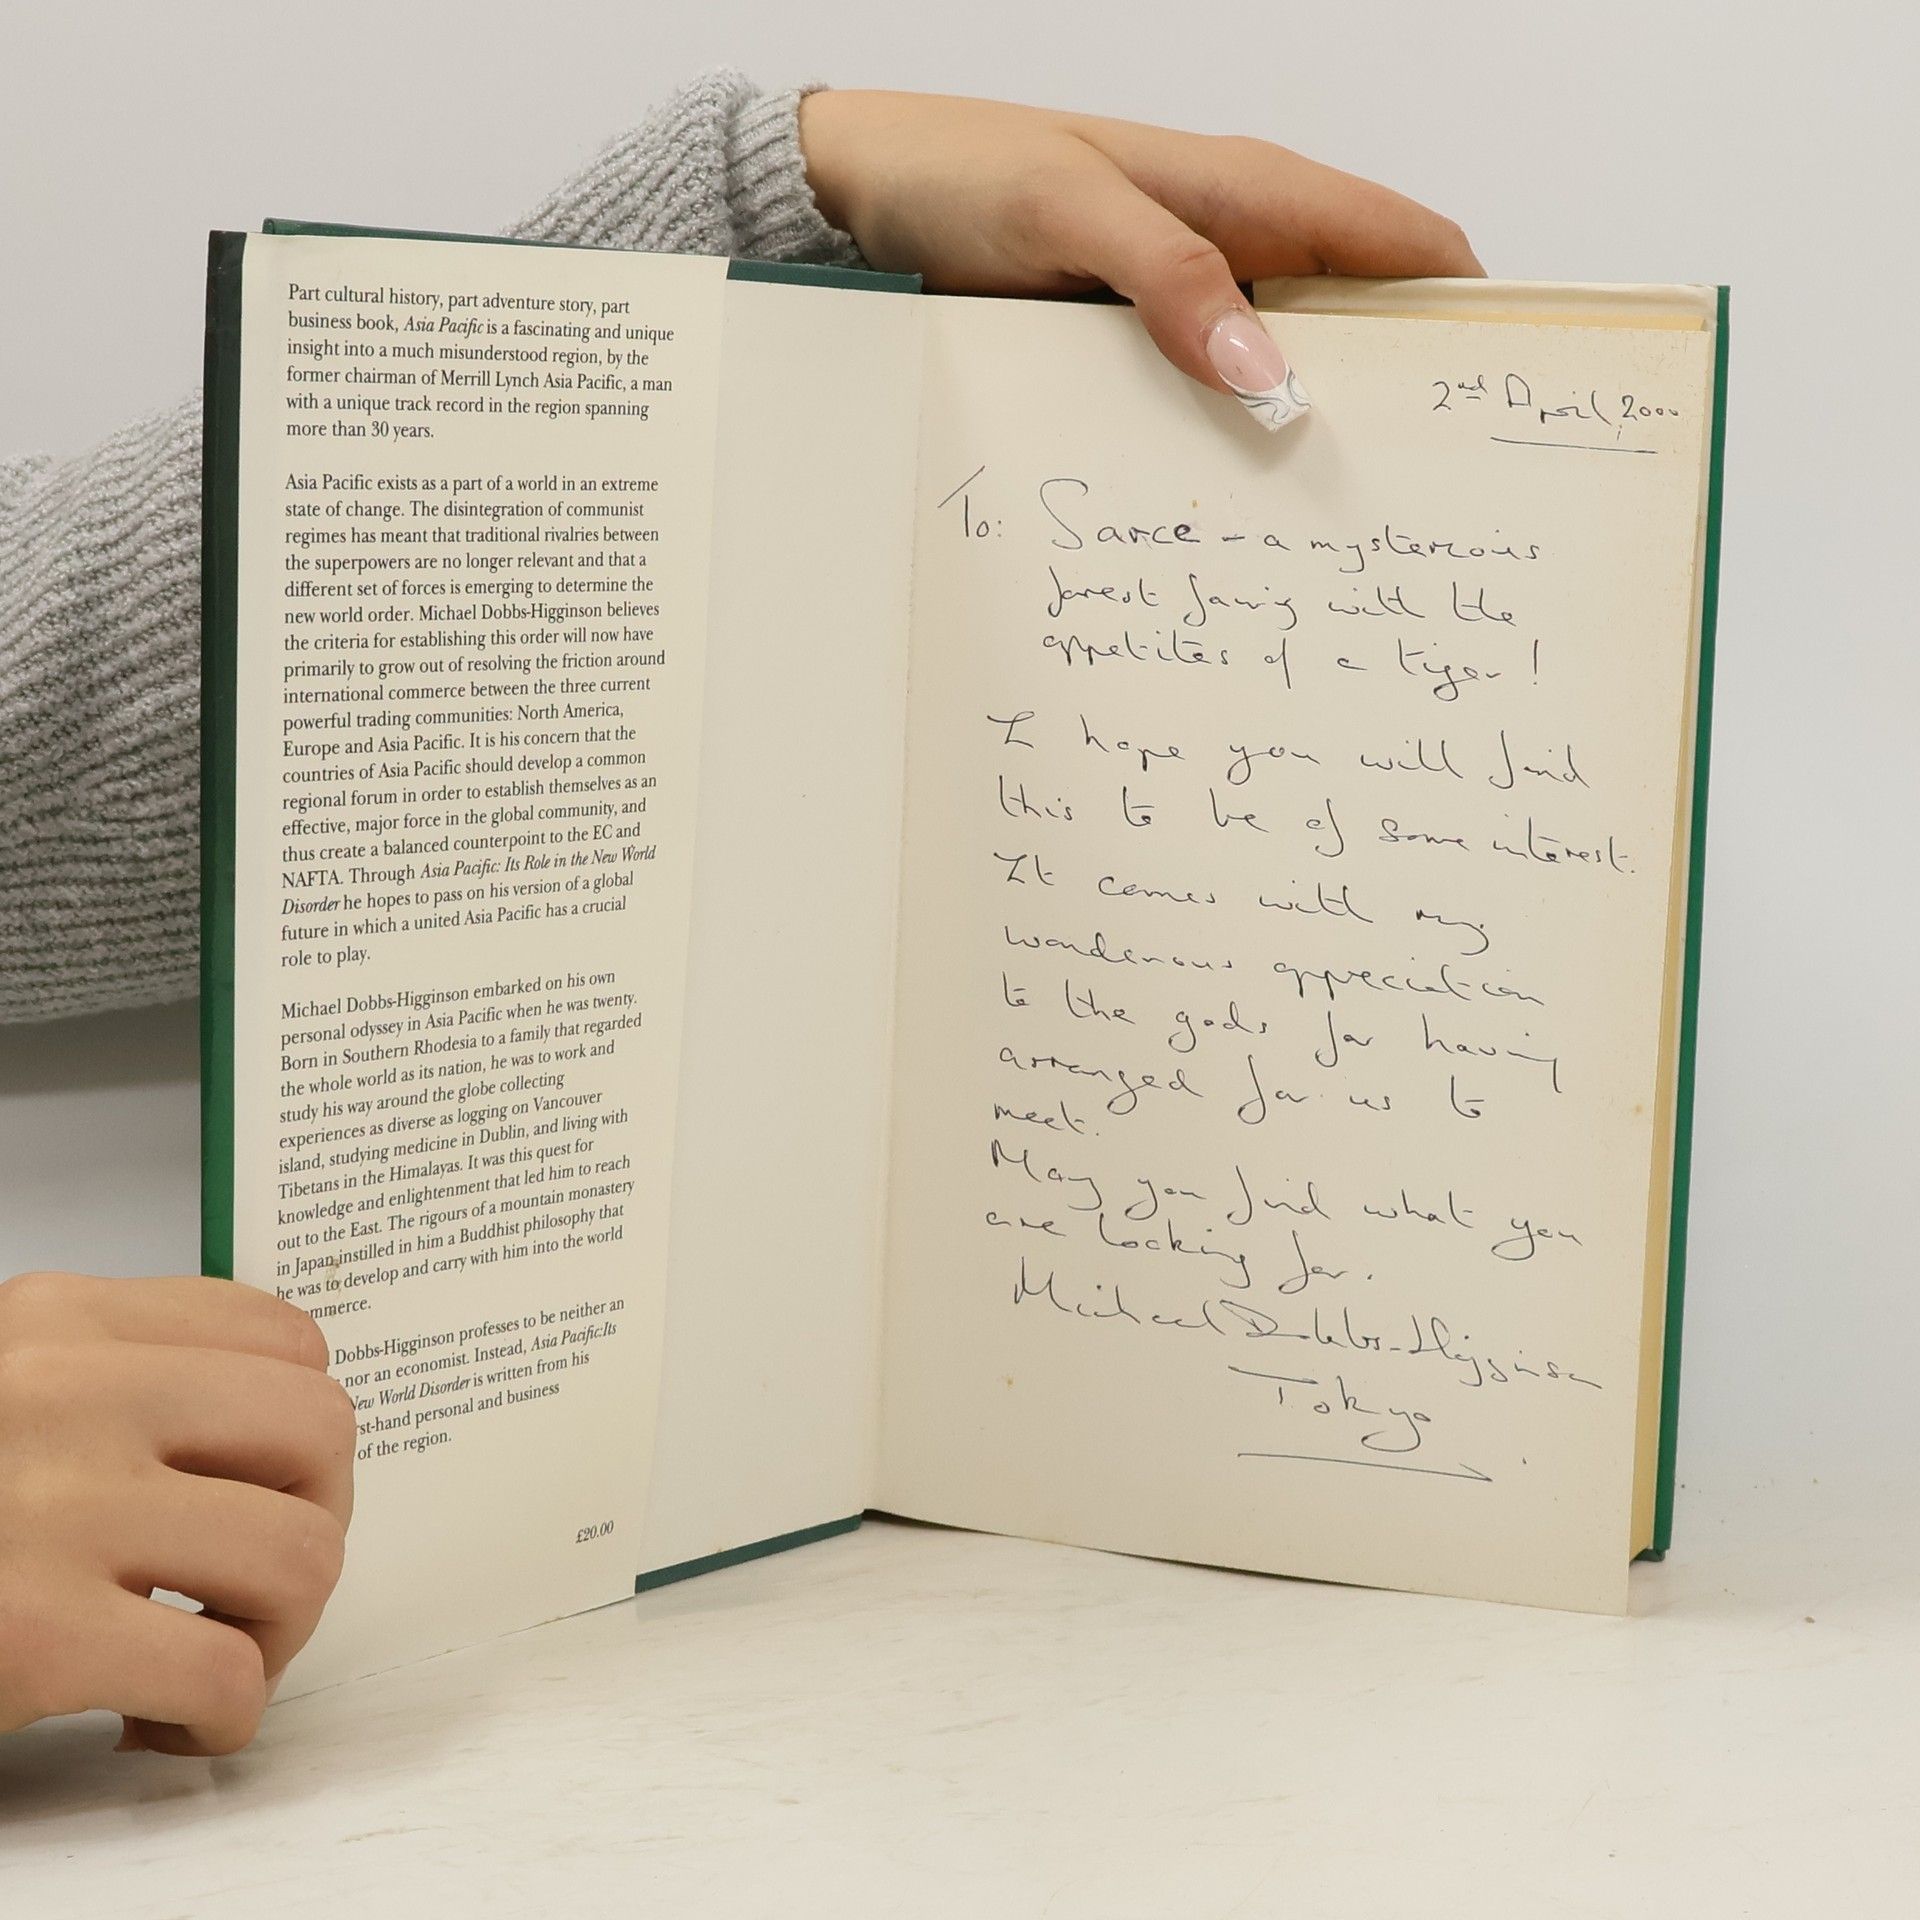 Part cultural history, part adventure story, part
business book, Asia Pacific is a fascinating and unique
insight into a much misunderstood region, by the
former chairman of Merrill Lynch Asia Pacific, a man
with a unique track record in the region spanning
more than 30 years.
Asia Pacific exists as a part of a world in an extreme
state of change. The disintegration of communist
regimes has meant that traditional rivalries between
the superpowers are no longer relevant and that a
different set of forces is emerging to determine the
new world order. Michael Dobbs-Higginson believes
the criteria for establishing this order will now have
primarily to grow out of resolving the friction around
international commerce between the three current
powerful trading communities: North America,
Europe and Asia Pacific. It is his concern that the
countries of Asia Pacific should develop a common
regional forum in order to establish themselves as an
effective, major force in the global community, and
thus create a balanced counterpoint to the EC and
NAFTA. Through Asia Pacific: Its Role in the New World
Disorder he hopes to pass on his version of a global
future in which a united Asia Pacific has a crucial
role to play.
Michael Dobbs-Higginson embarked on his own
personal odyssey in Asia Pacific when he was twenty.
Born in Southern Rhodesia to a family that regarded
the whole world as its nation, he was to work and
study his way around the globe collecting
experiences as diverse as logging on Vancouver
island, studying medicine in Dublin, and living with
Tibetans in the Himalayas. It was this quest for
knowledge and enlightenment that led him to reach
out to the East. The rigours of a mountain monastery
in Japan instilled in him a Buddhist philosophy that
he was to develop and carry with him into the world
mmerce.
Dobbs-Higginson professes to be neither an
nor an economist. Instead, Asia Pacific:Its
New World Disorder is written from his
rst-hand personal and business
of the region.
£20.00
2nd April, 2000
To: Sarce - a mysterious
forest with the
appetites of a tiger!
I hope you will find
this to be of some interest.
It comes with my
wonderous appreciation
to the gods for having
arranged for us to
meet.
May you find what you
are looking for.
Michael Dobbs-Higginson
Tokyo